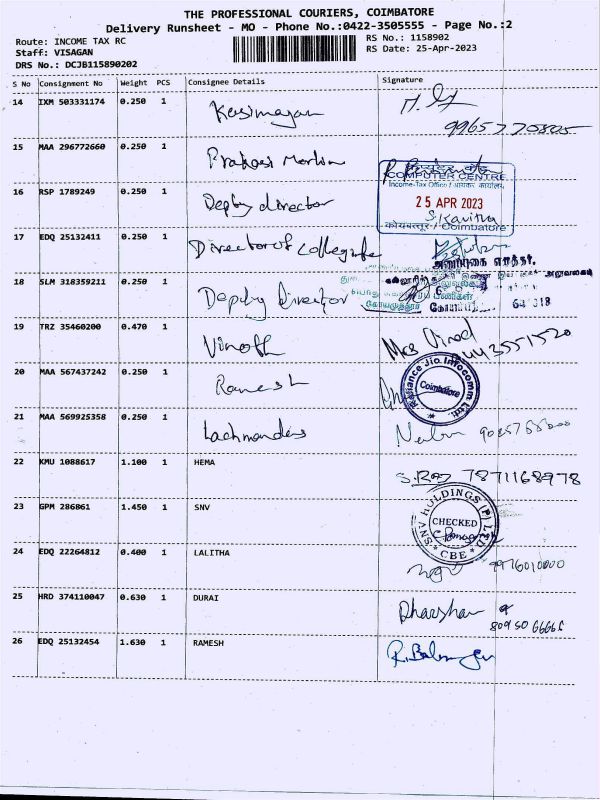 THE PROFESSIONAL COURIERS, COIMBATORE
Delivery Runsheet - MO - Phone No.:0422-3505555 - Page No.:2
Route: INCOME TAX RC
RS No.: 1158902
Staff: VISAGAN
RS Date: 25-Apr-2023
DRS No.: DCJB115890202
S No Consignment No Weight PCS Consignee Details Signature
14 IXM 503331174 0.250 1 Kasimayan
9965770805
15 MAA 296772660 0.250 1 Prakash
कम्प्यूटर केंद्र
COMPUTER CENTRE
Income-Tax Office / आयकर कार्यालय,
16 RSP 1789249 0.250 1 Deputy director
25 APR 2023
S. Kavitha
कोयम्बत्तूर / Coimbatore
17 EDQ 25132411 0.250 1 Director of collegiate
18 SLM 318359211 0.250 1 Deputy Director
19 TRZ 35460200 0.470 1 Vinoth
20 MAA 567437242 0.250 1 Ramesh
Reliance Jio Infocomm Ltd.
Coimbatore
21 MAA 569925358 0.250 1
22 KMU 1088617 1.100 1 HEMA
S. Raj 7871168978
23 GPM 286861 1.450 1 SNV
SNV HOLDINGS (P) LTD
CHECKED
CBE
24 EDQ 22264812 0.400 1 LALITHA
9976010000
25 HRD 374110047 0.630 1 DURAI
Dharshan
26 EDQ 25132454 1.630 1 RAMESH